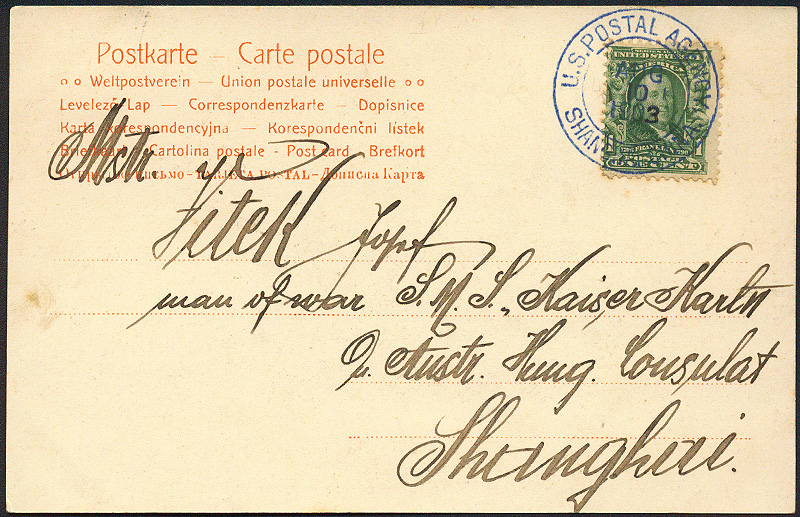 Postkarte – Carte postale
Weltpostverein – Union postale universelle
Levelező Lap – Correspondenzkarte – Dopisnice
Karta korespondencyjna – Korespondenční lístek
Cartolina postale - Post card - Brefkort
Дописна Карта
U.S. POSTAL AGENCY
AUG
10
1903
SHAN
UNITED STATES
FRANKLIN
POSTAGE
ONE CENT
Mstr.
Vitek Jopf
man of war S.M.S. „Kaiser Karl VI
Austr. Hung. Consulat
Shanghai.